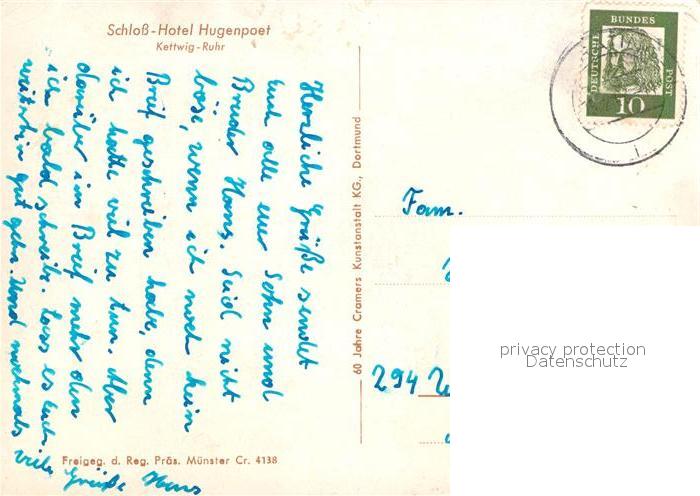 Schloß-Hotel Hugenpoet
Kettwig-Ruhr
Herzliche Grüße sendet
Euch alle euer Sohn und
Bruder Hans. Seid nicht
böse, wenn ich noch kein
Brief geschrieben habe, denn
ich hatte viel zu tun. Aber
darüber im Brief mehr den
ich bald schreibe. Lass es Euch
weiterhin gut gehn. Und nochmals
viele Grüße Hans
Freigeg. d. Reg. Präs. Münster Cr. 4138
60 Jahre Cramers Kunstanstalt KG., Dortmund
DEUTSCHE
BUNDES
POST
10
Fam.
294
privacy protection
Datenschutz